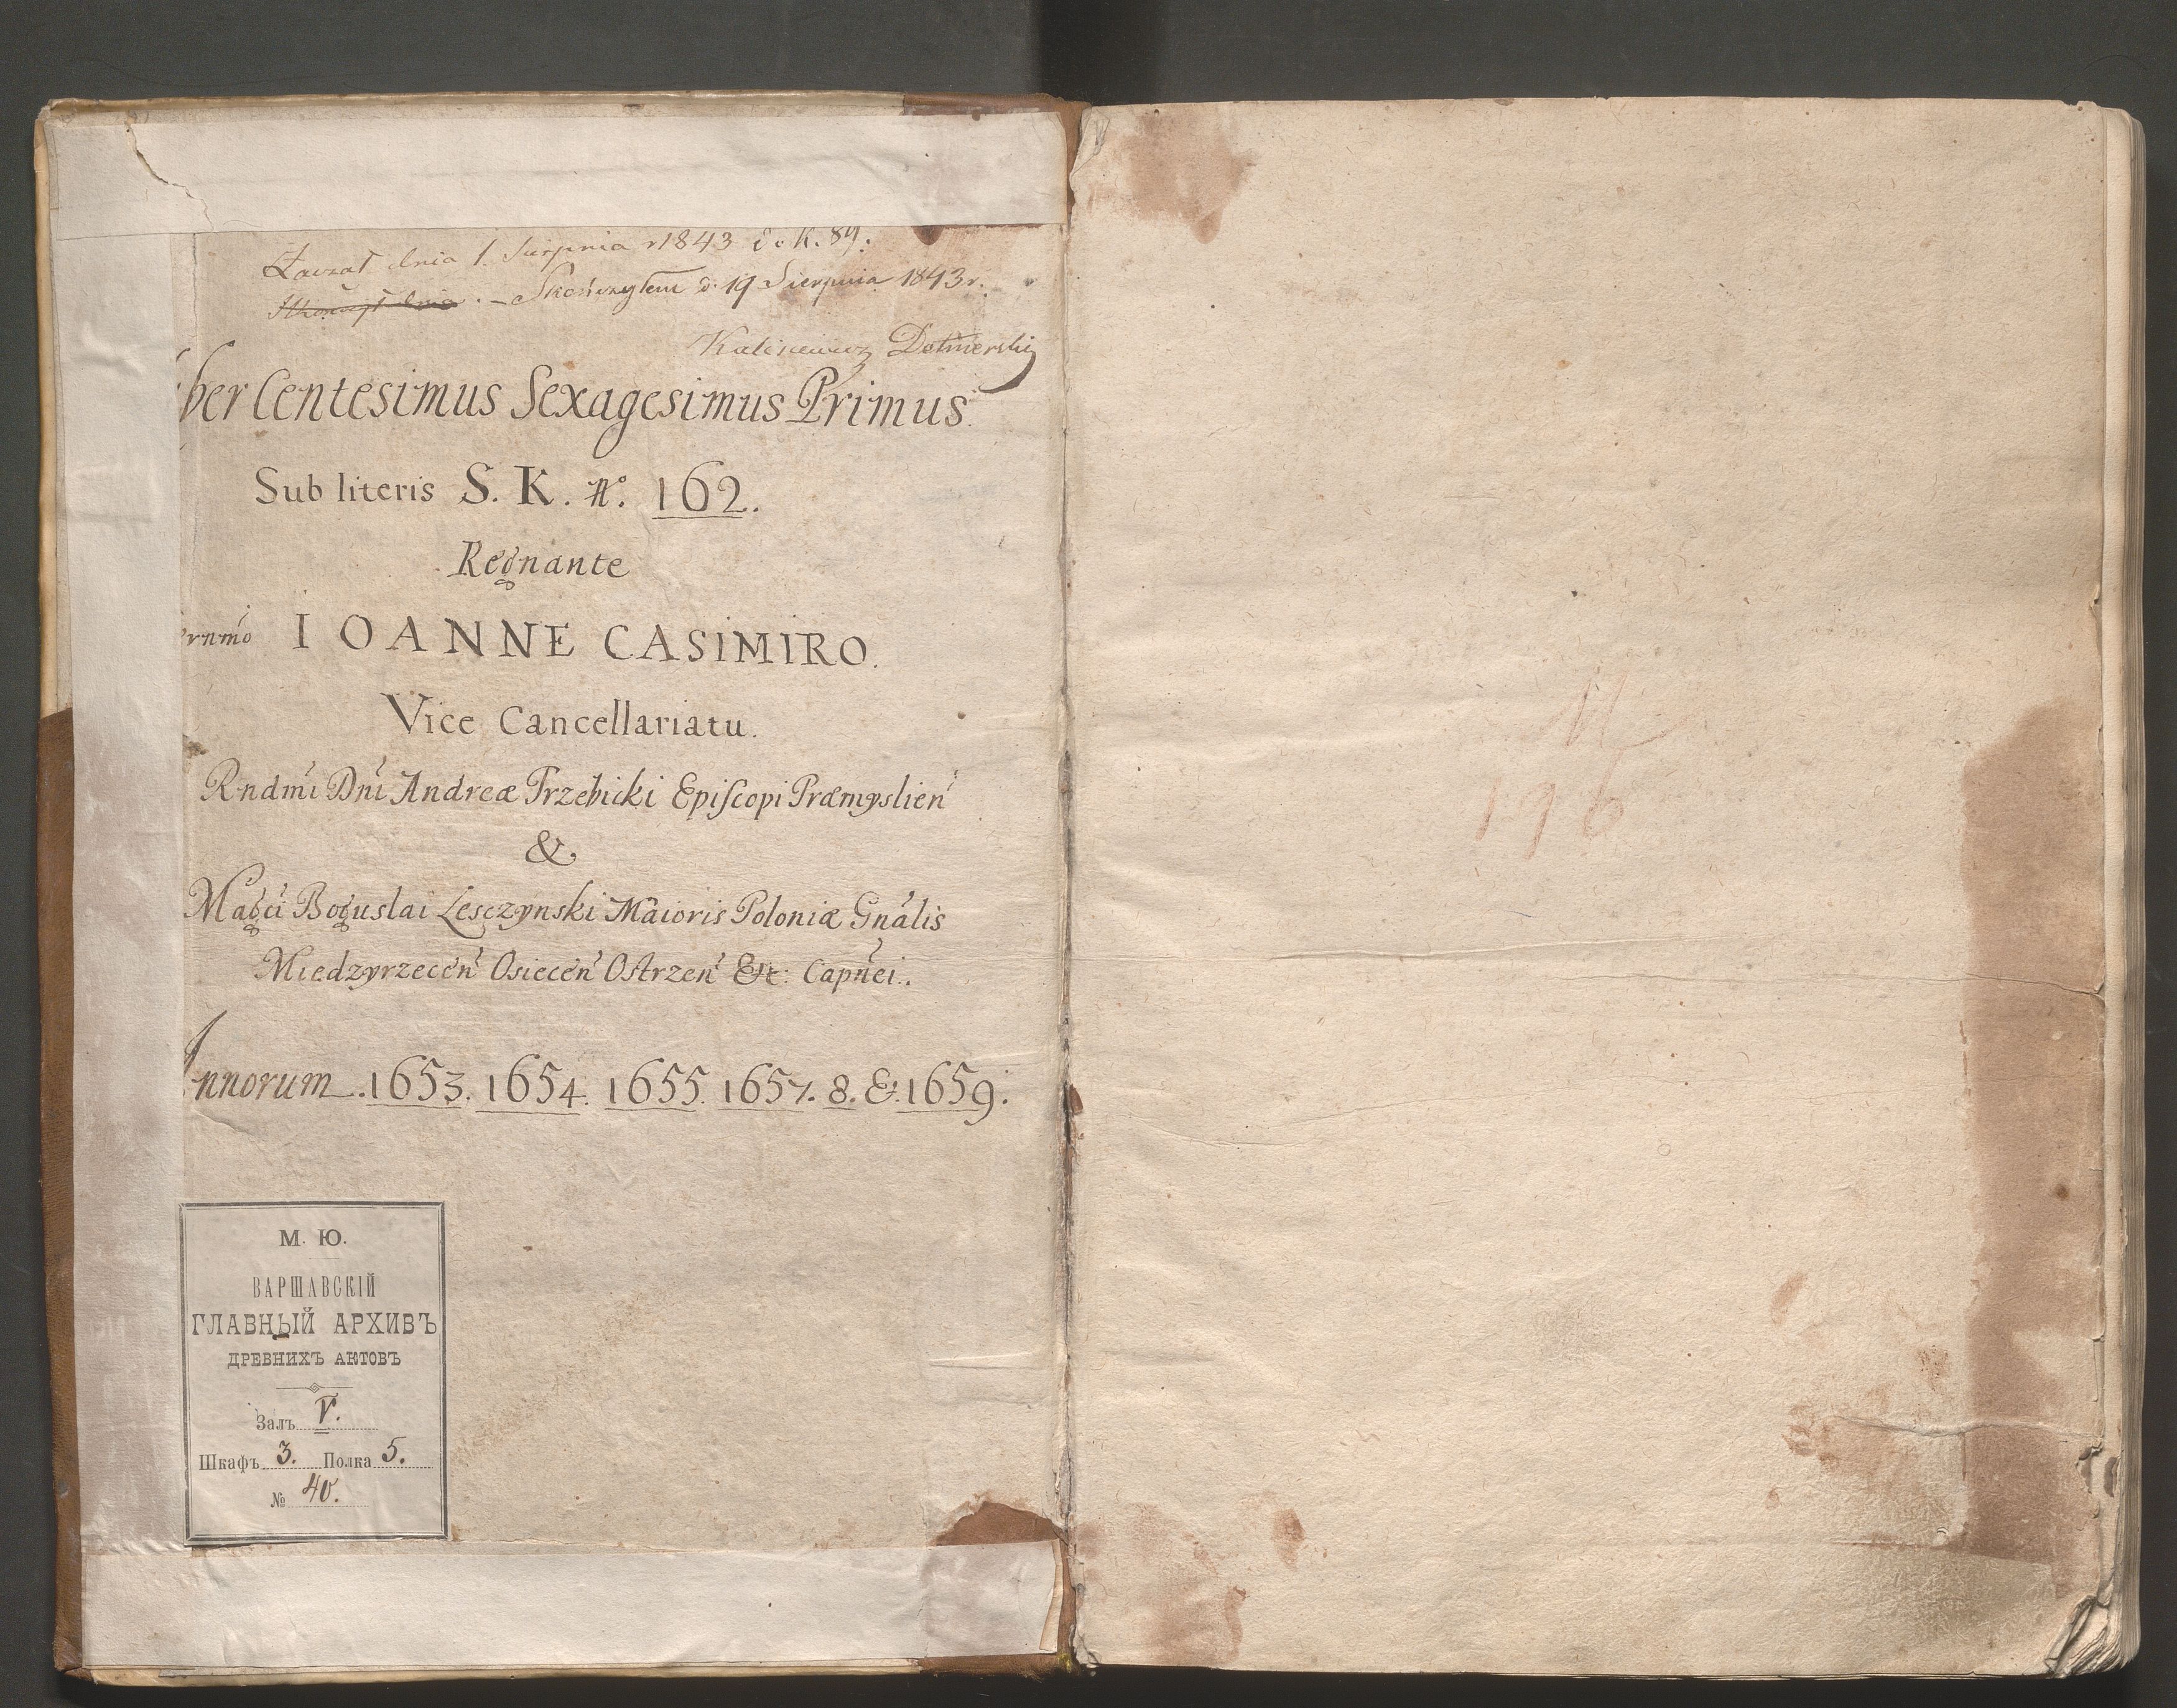 Zaczął dnia 1. Sierpnia r 1843 do k. 89.
Skończył dnia. – Skończyłem d. 19 Sierpnia 1843 r.
Kalisiewicz
ber Centesimus Sexagesimus Primus.
Sub literis S. K. N°. 162.
Regnante
rnmo IOANNE CASIMIRO.
Vice Cancellariatu.
Rndmi Dni Andreæ Trzebicki Episcopi Præmyslien
&
Magci Boguslai Lesczynski Maioris Poloniæ Gnalis
Miedzyrzecen Osiecen Ostrzen &c: Capnei.
Annorum. 1653. 1654. 1655. 1657. 8. & 1659.
М. Ю.
ВАРШАВСКІЙ
ГЛАВНЫЙ АРХИВЪ
ДРЕВНИХЪ АКТОВЪ
Залъ V.
Шкафъ 3. Полка 5.
№ 40.
M
196